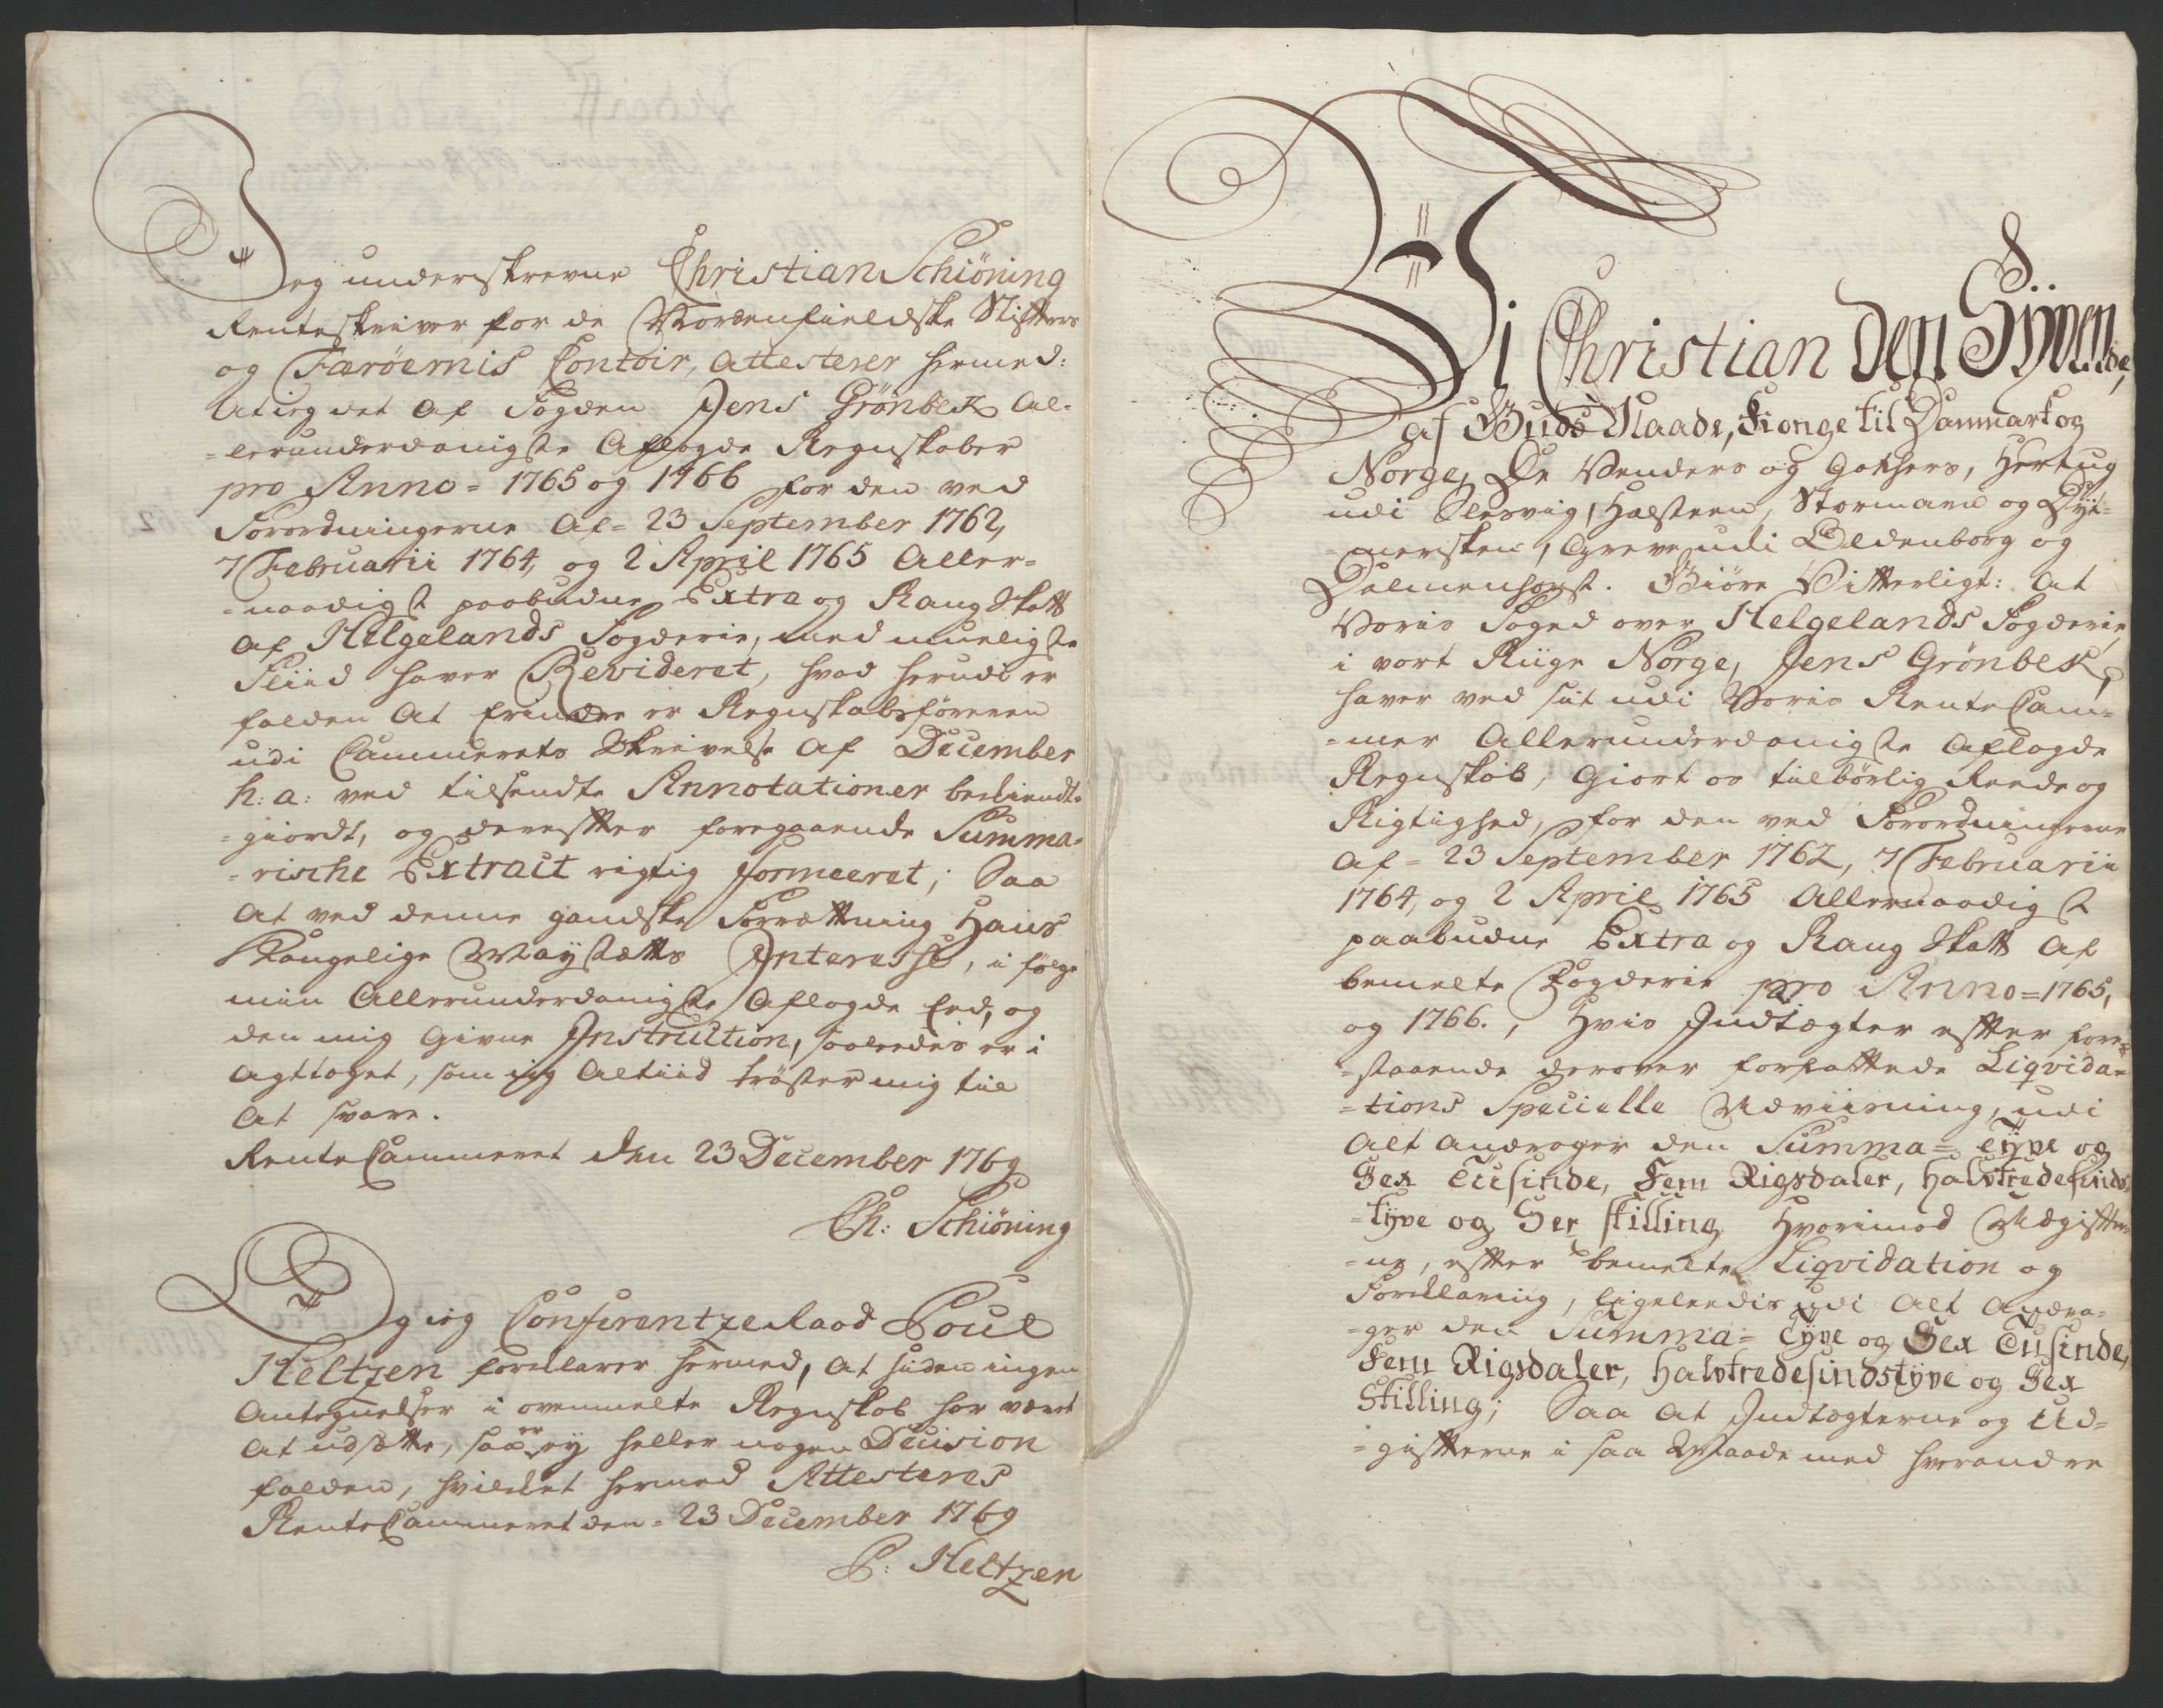 Jeg underskrevne Christian Schiöning
Renteskriver for de Nordenfieldske Stifters
og Færöernis Contoir, attesterer hermed:
at ieg det af Fogden Jens Grönbek al-
-lerunderdanigste aflagde Regnskaber
pro Anno = 1765 og 1766 for den ved
Forordningerne af = 23 September 1762,
7 Februarii 1764, og 2 April 1765 aller-
-naadigst paabudne Extra og Rang Skatt
af Helgelands Fogderie, med mueligste
Fliid haver Revideret, hvad herudi er
falden at erindre er Regnskabsföreren
udi Cammerets Skrivelse af December
h: a: ved tilsendte Annotationer bekiendt-
-giordt, og derefter foregaaende Summa-
-rische Extract rigtig formeeret; Saa
at ved denne gandske Forretning Hans
Kongelige Mayestætts Interesse, i fölge
min allerunderdanigste aflagde Eed, og
den mig givne Instruction, saaledes er i
agttaget, som ieg altiid tröster mig til
at svare.
RenteCammeret den 23 December 1769
Ch: Schiöning
Og ieg Conferentze Raad Poul
Heltzen forklarer hermed, at siden ingen
Antegnelser i ovenmelte Regnskab har været
at udsætte, saa er ey heller nogen Decision
falden, hvilket hermed Attesteres
RenteCammeret den = 23 December 1769
P: Heltzen
Vi Christian den Syvende,
af Guds Naade, Konge til Danmark og
Norge, De Venders og Gothers, Hertug
udi Slesvig, Holsteen, Stormarn og Dyt-
-mersken, Greve udi Oldenborg og
Delmenhorst. Giöre Vitterligt: at
Voris Foged over Helgelands Fogderie
i vort Riige Norge, Jens Grönbek,
haver ved sit udi Voris Rente Cam-
-mer allerunderdanigste aflagde
Regnskab, giort os tilbörlig Reede og
Rigtighed, for den ved Forordningerne
af = 23 September 1762, 7 Februarii
1764, og 2 April 1765 allernaadigst
paabudne Extra og Rang Skatt af
bemelte Fogderie pro Anno = 1765,
og 1766., Hvis Indtægter efter fore-
-staaende derover forfattede Liqvida-
-tions Specielle Udviisning, udi
alt andrager den Summa = Tyve og
Sex Tusinde, Fem Rigsdaler, halvtredesinds-
-tyve og Sex skilling Hvorimod Udgifter-
-ne, efter bemelte Liqvidation og
Forklaring, ligeleedis udi alt andra-
-ger den Summa = Tyve og Sex Tusinde,
Fem Rigsdaler, halvtredesindstyve og Sex
Skilling; Saa at Indtægterne og Ud-
-gifterne i saa Maade med hverandre